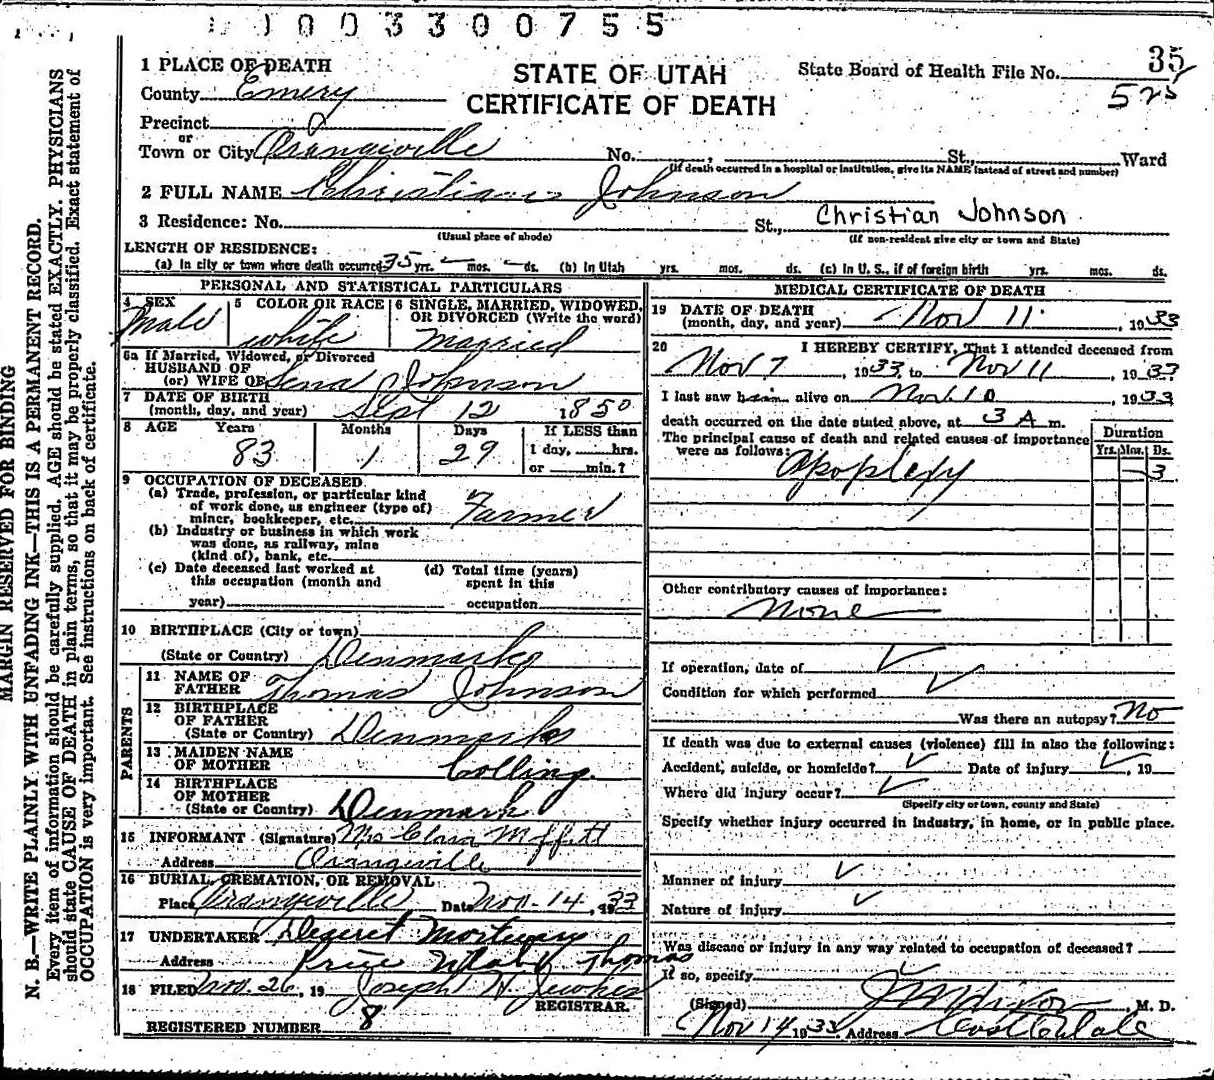 1 0 0 3 3 0 0 7 5 5
35
1 PLACE OF DEATH
STATE OF UTAH
State Board of Health File No.
County Emery
CERTIFICATE OF DEATH
525
Precinct
or
Town or City Orangeville No. , St., Ward
(If death occurred in a hospital or institution, give its NAME instead of street and number)
2 FULL NAME Christian Johnson
3 Residence: No. St., Christian Johnson
(Usual place of abode) (If non-resident give city or town and State)
LENGTH OF RESIDENCE:
(a) In city or town where death occurred 35 yrs. – mos. – ds. (b) In Utah yrs. mos. ds. (c) In U. S., if of foreign birth yrs. mos. ds.
PERSONAL AND STATISTICAL PARTICULARS
4 SEX
Male
5 COLOR OR RACE
white
6 SINGLE, MARRIED, WIDOWED,
OR DIVORCED (Write the word)
Married
6a If Married, Widowed, or Divorced
HUSBAND OF
(or) WIFE OF Sena Johnson
7 DATE OF BIRTH
(month, day, and year) Sept 12 1850
8 AGE Years Months Days If LESS than
83 1 29 1 day, hrs.
or min.?
9 OCCUPATION OF DECEASED
(a) Trade, profession, or particular kind
of work done, as engineer (type of)
miner, bookkeeper, etc. Farmer
(b) Industry or business in which work
was done, as railway, mine
(kind of), bank, etc.
(c) Date deceased last worked at
this occupation (month and
year)
(d) Total time (years)
spent in this
occupation
10 BIRTHPLACE (City or town)
(State or Country) Denmark
PARENTS
11 NAME OF
FATHER Thomas Johnson
12 BIRTHPLACE
OF FATHER
(State or Country) Denmark
13 MAIDEN NAME
OF MOTHER Colling
14 BIRTHPLACE
OF MOTHER
(State or Country) Denmark
15 INFORMANT (Signature) Mrs Clara Moffitt
Address Orangeville
16 BURIAL, CREMATION, OR REMOVAL
Place Orangeville Date Nov-14, 1933
17 UNDERTAKER Deseret Mortuary
Address Price Utah Thomas
18 FILED Nov. 26, 19 Joseph H Jewkes
REGISTRAR.
REGISTERED NUMBER 8
MEDICAL CERTIFICATE OF DEATH
19 DATE OF DEATH
(month, day, and year) Nov 11 , 1933
20 I HEREBY CERTIFY, That I attended deceased from
Nov 7 , 1933, to Nov 11 , 1933
I last saw him alive on Nov 10 , 1933
death occurred on the date stated above, at 3 A m.
The principal cause of death and related causes of importance
were as follows:
Duration
Yrs. Mos. Ds.
Apoplexy – 3
Other contributory causes of importance:
None
If operation, date of ✓
Condition for which performed ✓
Was there an autopsy? No
If death was due to external causes (violence) fill in also the following:
Accident, suicide, or homicide? ✓ Date of injury ✓, 19
Where did injury occur? ✓
(Specify city or town, county and State)
Specify whether injury occurred in industry, in home, or in public place.
Manner of injury ✓
Nature of injury ✓
Was disease or injury in any way related to occupation of deceased?
If so, specify ✓
(Signed) , M. D.
Nov 14 1933 Address Castle Dale
MARGIN RESERVED FOR BINDING
N. B.—WRITE PLAINLY WITH UNFADING INK—THIS IS A PERMANENT RECORD.
Every item of information should be carefully supplied. AGE should be stated EXACTLY. PHYSICIANS
should state CAUSE OF DEATH in plain terms, so that it may be properly classified. Exact statement of
OCCUPATION is very important. See instructions on back of certificate.